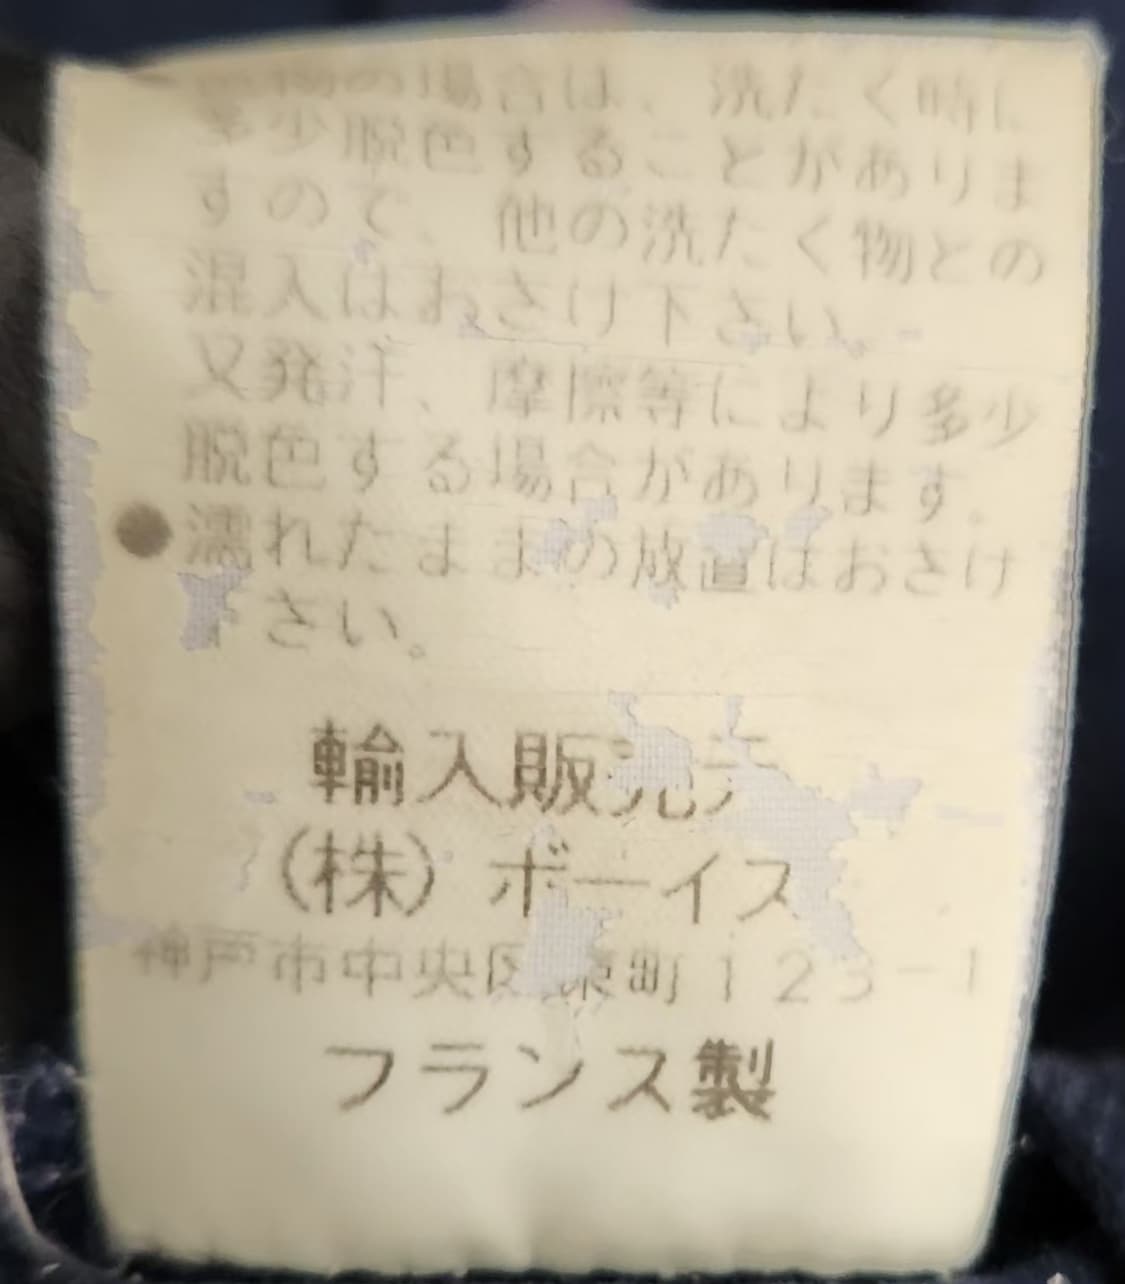 物の場合は、洗たく時に
多少脱色することがありま
すので、他の洗たく物との
混入はおさけ下さい。
又発汗、摩擦等により多少
脱色する場合があります。
●濡れたままの放置はおさけ
下さい。
輸入販売元
(株)ボーイズ
神戸市中央区東町123-1
フランス製